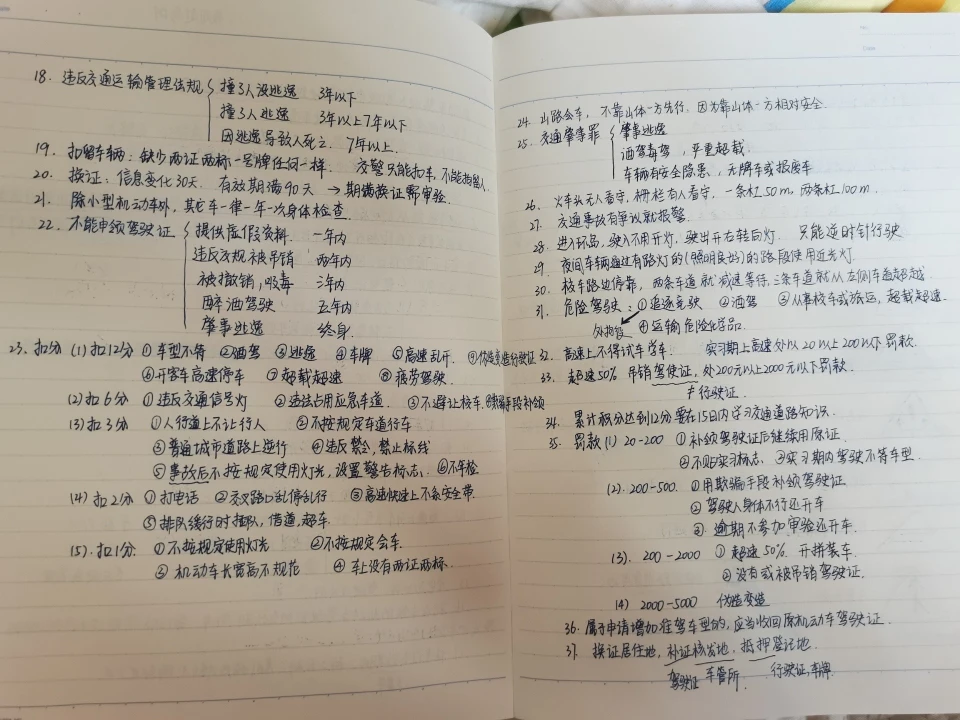 18. 违反交通运输管理法规 撞了人没逃逸 3年以下
撞了人逃逸 3年以上7年以下
因逃逸导致人死亡. 7年以上.
19. 扣留车辆: 缺少两证两标一号牌任何一样 交警只能扣车,不能拘留人.
20. 换证: 信息变化30天. 有效期满90天 → 期满换证需审验.
21. 除小型机动车外,其它车一律一年一次身体检查.
22. 不能申领驾驶证 提供虚假资料. 一年内
违反法规被吊销 两年内
被撤销,吸毒 三年内
醉酒驾驶 五年内
肇事逃逸 终身.
23. 扣分 (1) 扣12分 ①车型不符 ②酒驾 ③逃逸 ④车牌 ⑤高速乱开.
⑥开客车高速停车 ⑦超载超速 ⑧疲劳驾驶.
(2) 扣6分 ①违反交通信号灯 ②违法占用应急车道. ③不避让校车.
(3) 扣3分 ①人行道上不让行人 ②不按规定车道行车
③普通城市道路上逆行 ④违反禁令,禁止标线
⑤事故后不按规定使用灯光,设置警告标志. ⑥不年检
(4) 扣2分 ①打电话 ②交叉路口乱停乱行 ③高速快速上不系安全带.
⑤排队缓行时插队,借道,超车.
(5). 扣1分. ①不按规定使用灯光 ②不按规定会车.
③ 机动车长宽高不规范 ④ 车上没有两证两标.
24. 山路会车, 不靠山体一方先行,因为靠山体一方相对安全.
25. 交通肇事罪 肇事逃逸
酒驾毒驾,严重超载
车辆有安全隐患,无牌车或报废车
26. 火车头无人看守,栅栏有人看守, 一条杠50m,两条杠100m.
27. 交通事故有争议就报警.
28. 进入环岛,驶入不用开灯,驶出开右转向灯. 只能逆时针行驶
29. 夜间车辆通过有路灯的(照明良好)的路段使用近光灯.
30. 校车路边停靠,两条车道就减速等待,三条车道就从左侧车道超越.
31. 危险驾驶: ①追逐竞驶 ②酒驾 ③从事校车或旅运,超载超速.
处拘役 ④运输危险化学品.
32. 高速上不得试车学车. 实习期上高速处以20以上200以下罚款.
33. 超速50% 吊销驾驶证,处200元以上2000元以下罚款.
≠行驶证.
34. 累计积分达到12分要在15日内学习交通道路知识.
35. 罚款 (1) 20-200 ①补领驾驶证后继续用原证.
②不贴实习标志. ③实习期内驾驶不符车型.
(2). 200-500. ①用欺骗手段补领驾驶证
②驾驶人身体不行还开车
③. 逾期不参加审验还开车.
(3). 200-2000 ① 超速50%. 开拼装车.
②没有或被吊销驾驶证.
(4) 2000-5000 伪造变造
36. 属于申请增加准驾车型的,应当收回原机动车驾驶证.
37. 换证居住地,补证核发地.抵押登记地.
驾驶证 车管所. 行驶证,车牌